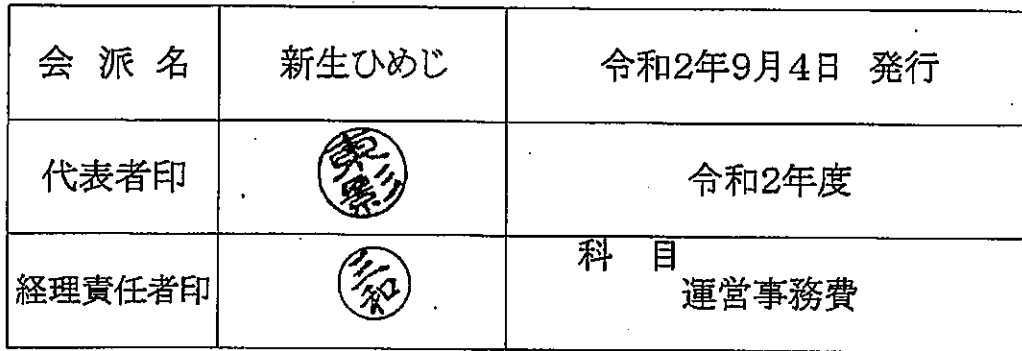 会派名 新生ひめじ 令和2年9月4日 発行
代表者印 令和2年度
経理責任者印 三和 科目
運営事務費